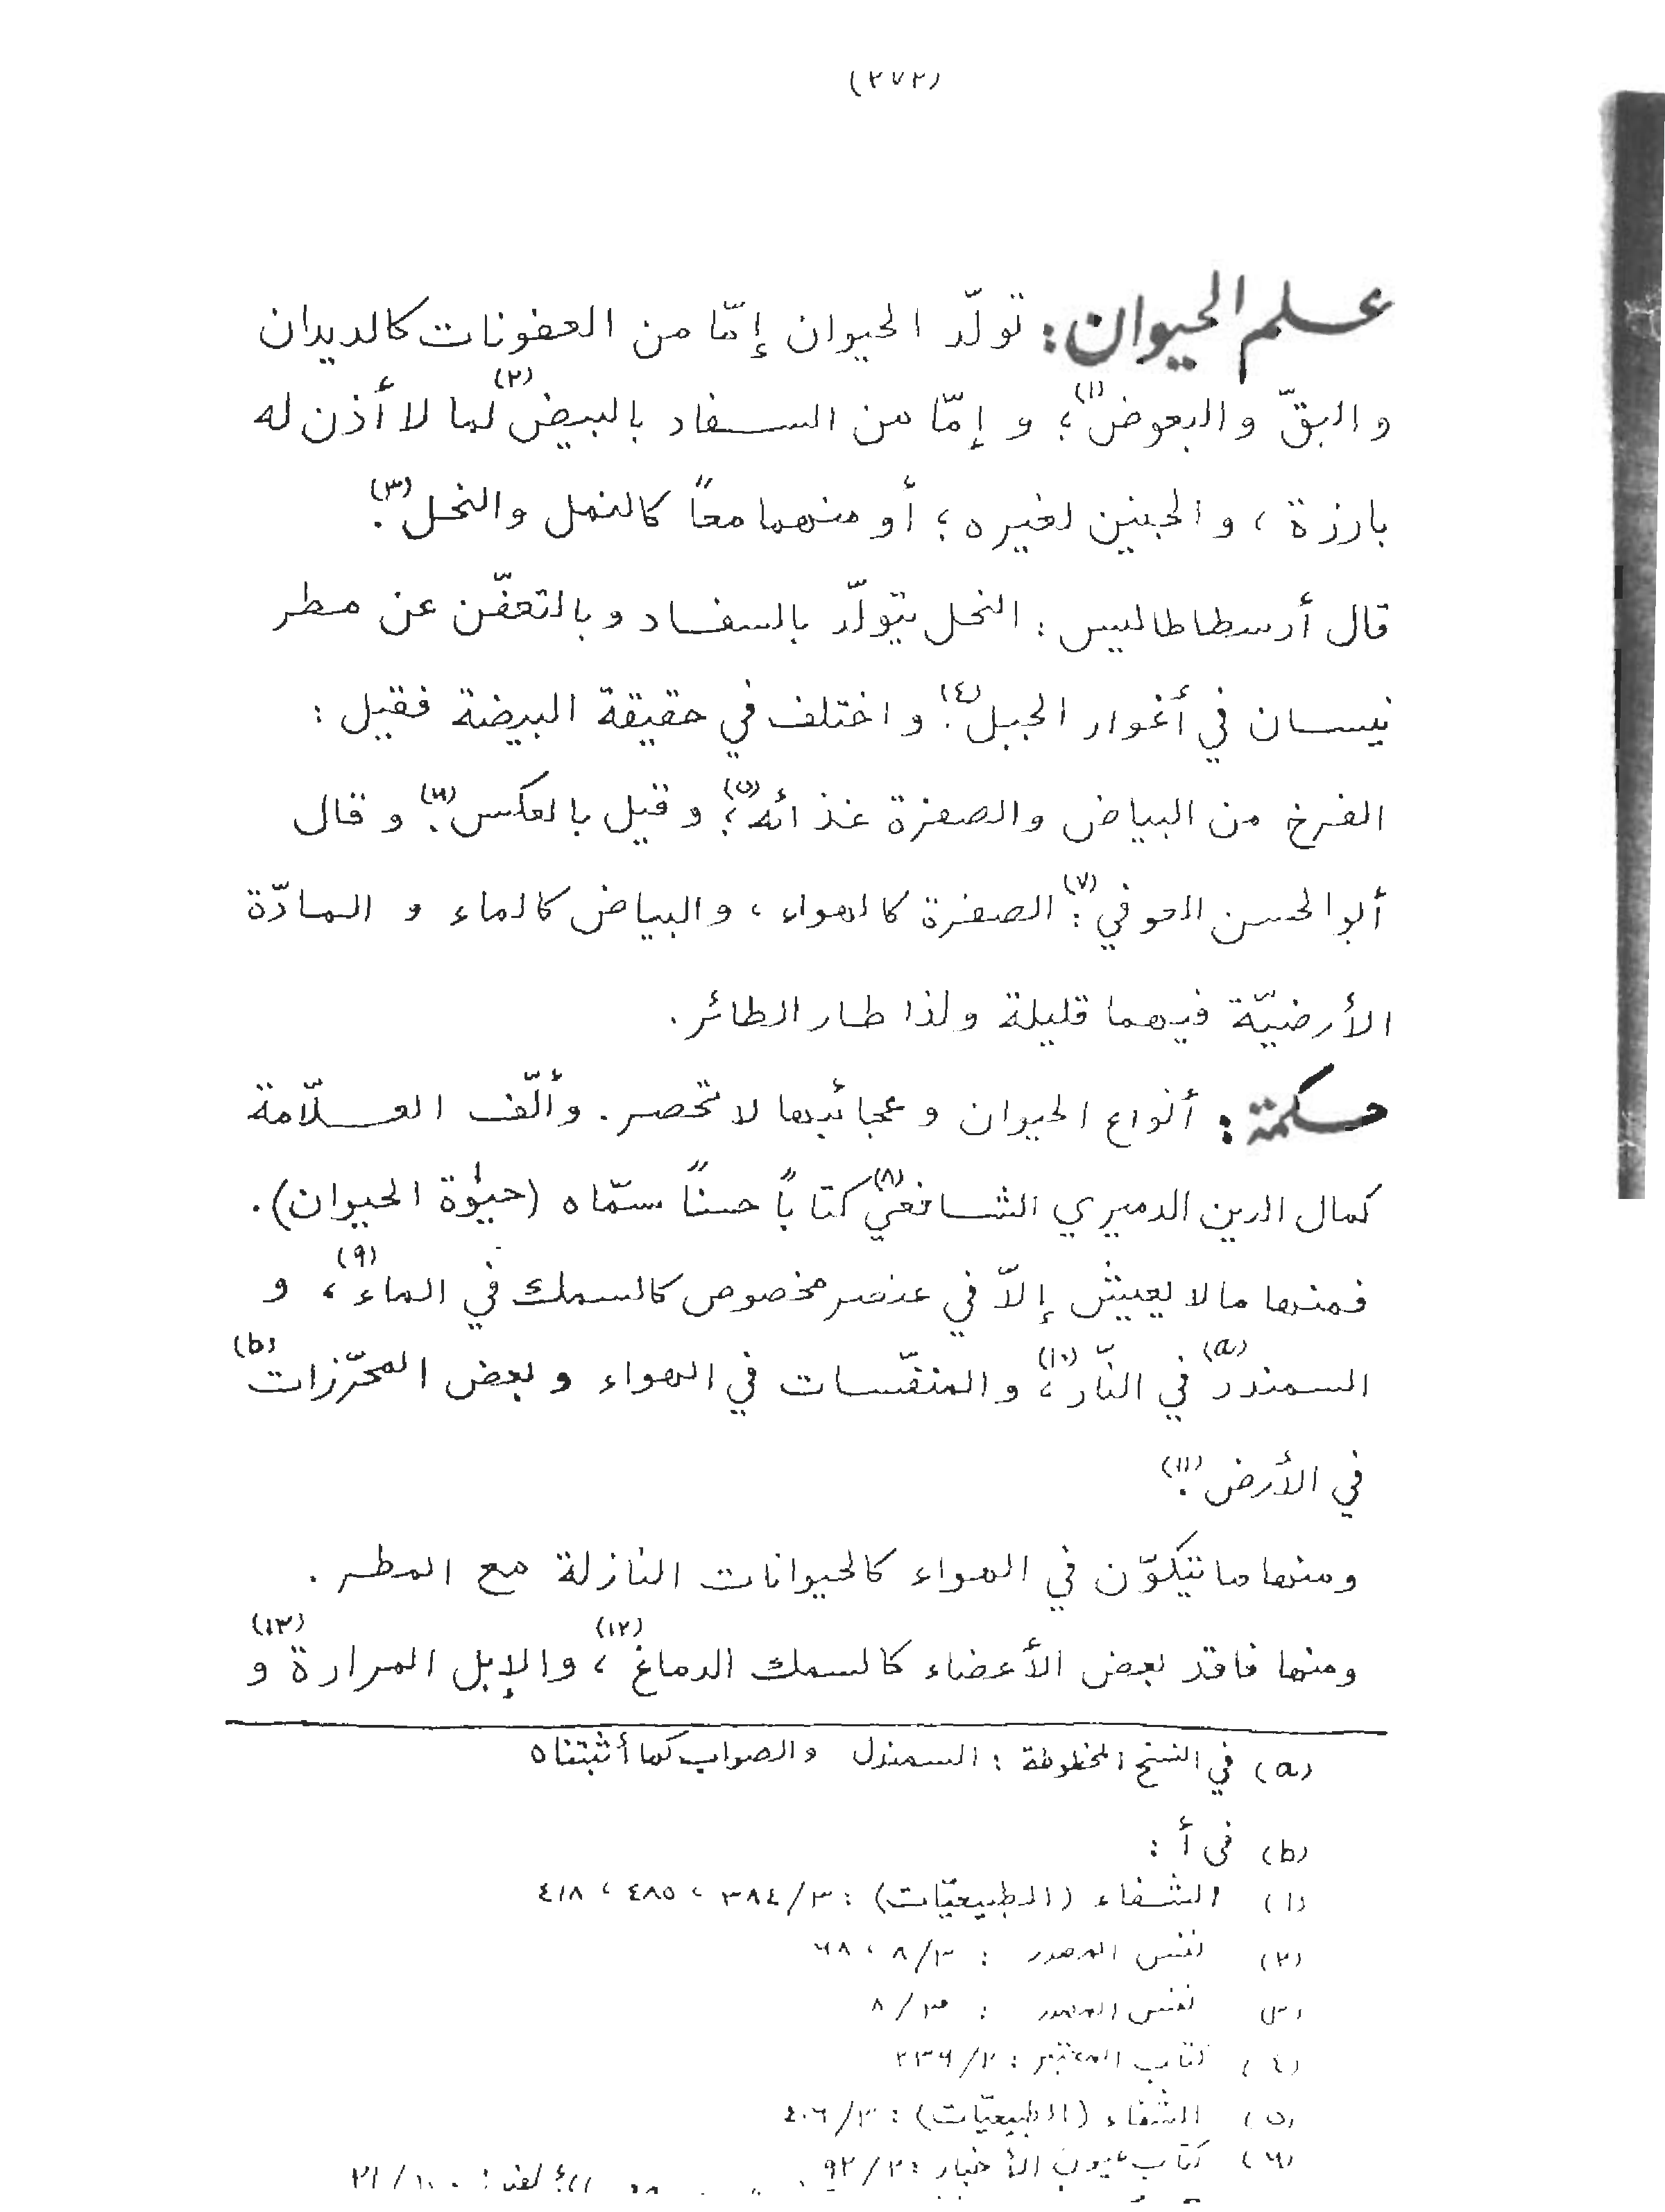 (٢٧٢)
علم الحيوان: تولّد الحيوان إمّا من العفونات كالديدان
والبقّ والبعوض(١)؛ و إمّا من السفاد بالبيض(٢) لما لا أذن له
بارزة، والجنين لغيره؛ أو منهما معاً كالنمل والنحل(٣).
قال أرسطاطاليس: النحل يتولّد بالسفاد وبالتعفّن عن مطر
نيسان في أغوار الجبل(٤). و اختلف في حقيقة البيضة فقيل:
الفرخ من البياض والصفرة غذائه(٥)؛ وقيل بالعكس(٦). وقال
أبو الحسن العوفي(٧): الصفرة كالهواء، والبياض كالماء و المادّة
الأرضيّة فيهما قليلة ولذا طار الطائر.
حكمة: أنواع الحيوان وعجائبها لا تحصر. وألّف العلّامة
كمال الدين الدميري الشافعي(٨) كتاباً حسناً سمّاه (حيوٰة الحيوان).
فمنها ما لا يعيش إلاّ في عنصر مخصوص كالسمك في الماء(٩)، و
السمندر(a) في النّار(١٠)، والمتنفّسات في الهواء وبعض المحرّزات(b)
في الأرض(١١).
ومنها ما يتكوّن في الهواء كالحيوانات النازلة مع المطر.
ومنها فاقد بعض الأعضاء كالسمك الدماغ(١٢)، والإبل المرارة(١٣) و
(a) في النسخ المخطوطة: السمندل والصواب كما أثبتناه
(b) في أ:
(١) الشفاء (الطبيعيّات): ٣٨٤/٣، ٤٨٥، ٤١٨
(٢) نفس المصدر: ٨/٣، ٦٨
(٣) نفس المصدر: ٨/٣
(٤) كتاب المعتبر: ٢٣٦/٢
(٥) الشفاء (الطبيعيّات): ٤٠٦/٣
(٦) كتاب عيون الأخبار: ٩٢/٢